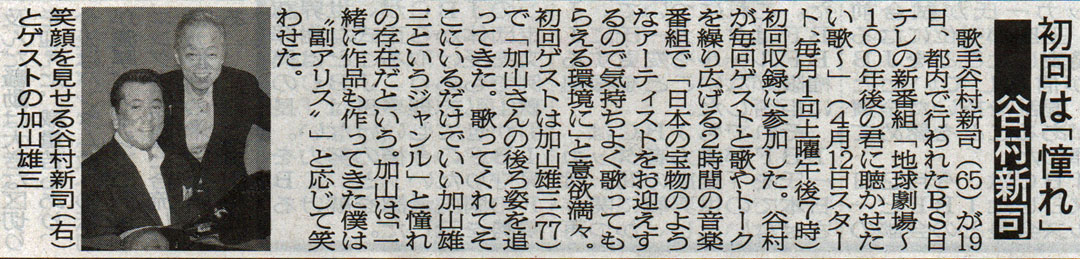 初回は「憧れ」
谷村新司
歌手谷村新司（65）が19
日、都内で行われたBS日
テレの新番組「地球劇場〜
100年後の君に聴かせた
い歌〜」（4月12日スター
ト、毎月1回土曜午後7時）
初回収録に参加した。谷村
が毎回ゲストと歌やトーク
を繰り広げる2時間の音楽
番組で「日本の宝物のよう
なアーティストをお迎えす
るので気持ちよく歌っても
らえる環境に」と意欲満々。
初回ゲストは加山雄三（77）
で「加山さんの後ろ姿を追
ってきた。歌ってくれてそ
こにいるだけでいい加山雄
三というジャンル」と憧れ
の存在だという。加山は「一
緒に作品も作ってきた僕は
〝副アリス〟」と応じて笑
わせた。
笑顔を見せる谷村新司（右）
とゲストの加山雄三